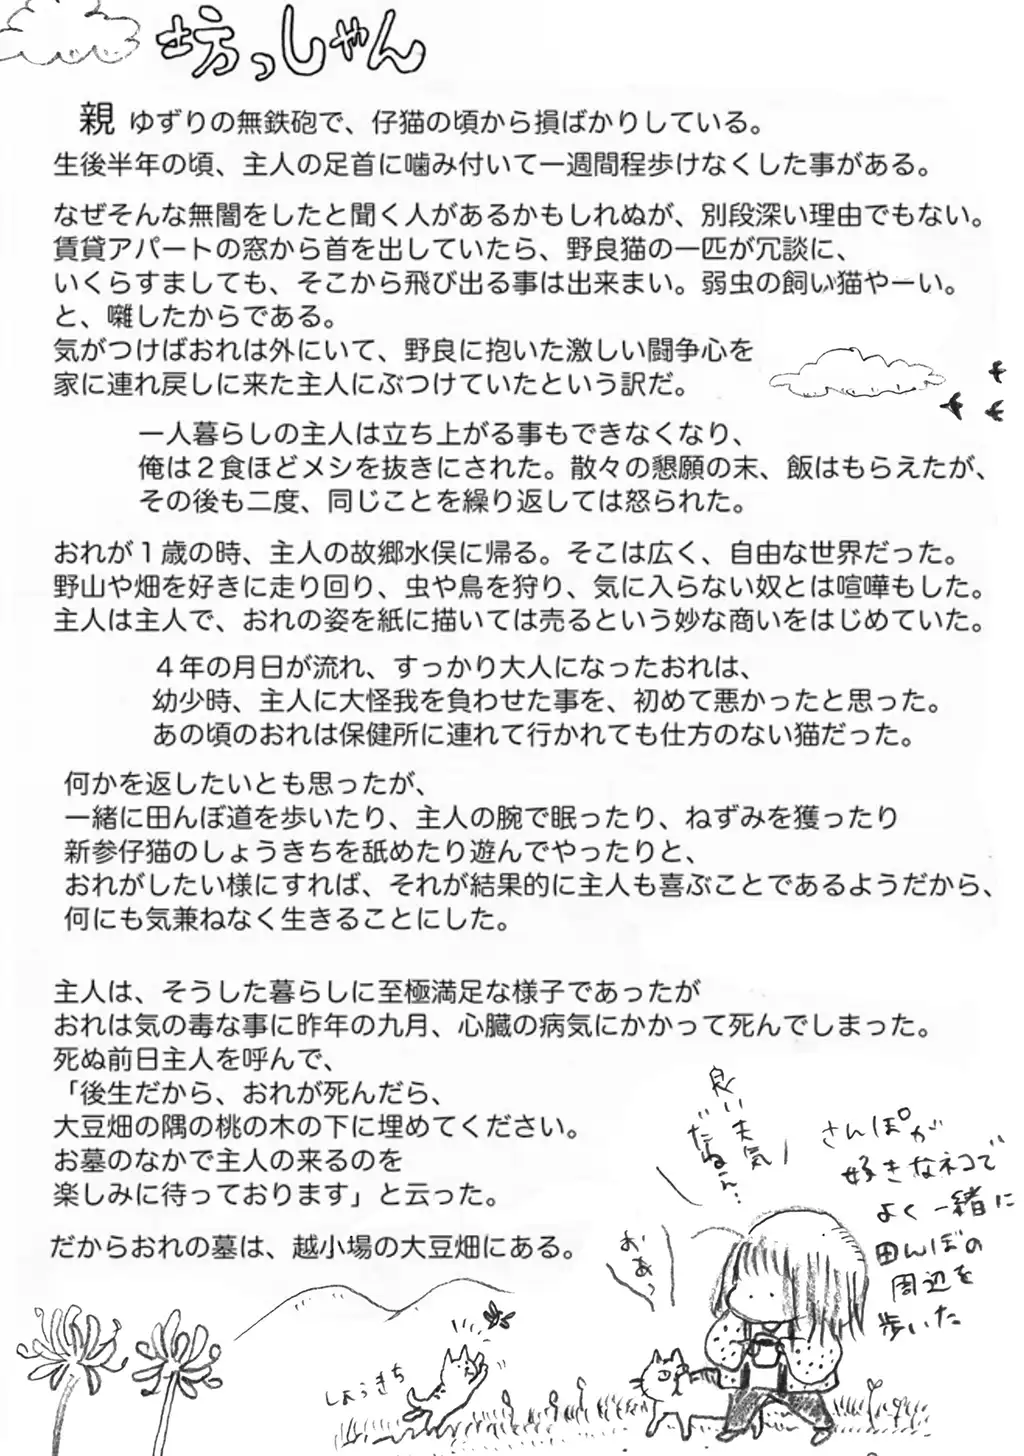 坊っしゃん
親ゆずりの無鉄砲で、仔猫の頃から損ばかりしている。
生後半年の頃、主人の足首に噛み付いて一週間程歩けなくした事がある。
なぜそんな無闇をしたと聞く人があるかもしれぬが、別段深い理由でもない。
賃貸アパートの窓から首を出していたら、野良猫の一匹が冗談に、
いくらすましても、そこから飛び出る事は出来まい。弱虫の飼い猫やーい。
と、囃したからである。
気がつけばおれは外にいて、野良に抱いた激しい闘争心を
家に連れ戻しに来た主人にぶつけていたという訳だ。
一人暮らしの主人は立ち上がる事もできなくなり、
俺は2食ほどメシを抜きにされた。散々の懇願の末、飯はもらえたが、
その後も二度、同じことを繰り返しては怒られた。
おれが1歳の時、主人の故郷水俣に帰る。そこは広く、自由な世界だった。
野山や畑を好きに走り回り、虫や鳥を狩り、気に入らない奴とは喧嘩もした。
主人は主人で、おれの姿を紙に描いては売るという妙な商いをはじめていた。
4年の月日が流れ、すっかり大人になったおれは、
幼少時、主人に大怪我を負わせた事を、初めて悪かったと思った。
あの頃のおれは保健所に連れて行かれても仕方のない猫だった。
何かを返したいとも思ったが、
一緒に田んぼ道を歩いたり、主人の腕で眠ったり、ねずみを獲ったり
新参仔猫のしょうきちを舐めたり遊んでやったりと、
おれがしたい様にすれば、それが結果的に主人も喜ぶことであるようだから、
何にも気兼ねなく生きることにした。
主人は、そうした暮らしに至極満足な様子であったが
おれは気の毒な事に昨年の九月、心臓の病気にかかって死んでしまった。
死ぬ前日主人を呼んで、
「後生だから、おれが死んだら、
大豆畑の隅の桃の木の下に埋めてください。
お墓のなかで主人の来るのを
楽しみに待っております」と云った。
だからおれの墓は、越小場の大豆畑にある。
良い天気
だねぇ…
おあっ
さんぽが
好きなネコで
よく一緒に
田んぼの
周辺を
歩いた
しょうきち